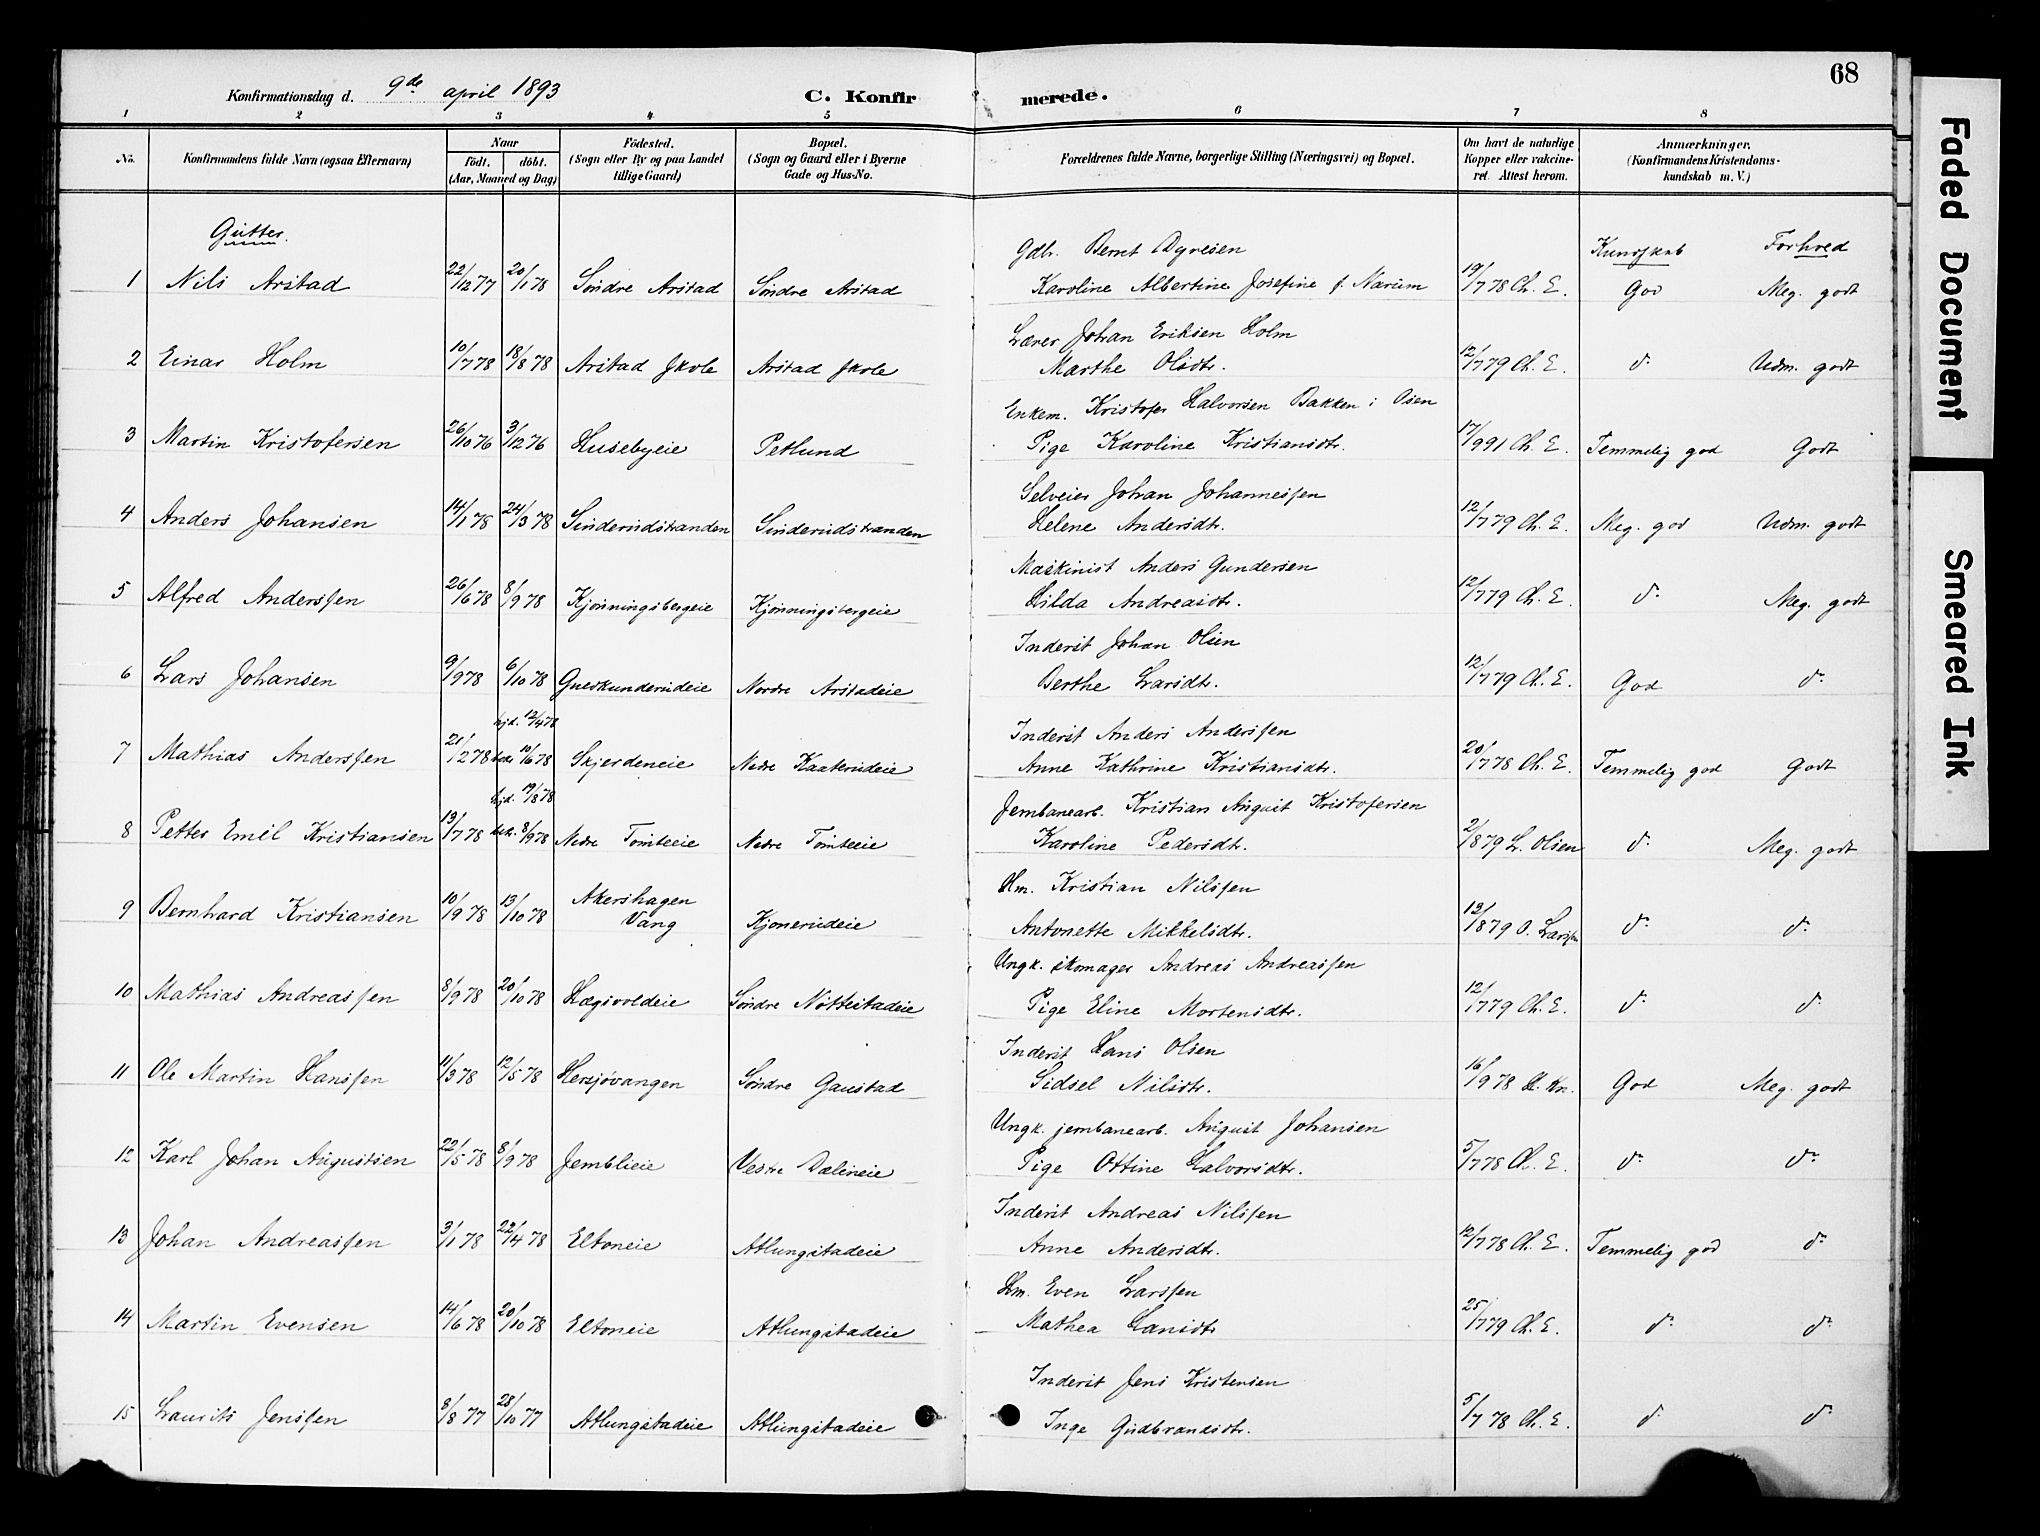 68
Konfirmationsdag d. 9de april 1893 C. Konfirmerede.
1 2 3 4 5 6 7 8
No. Konfirmandens fulde Navn (ogsaa Efternavn) Naar født. døbt. (Aar, Maaned og Dag) Fødested. (Sogn eller By og paa Landet tillige Gaard) Bopæl. (Sogn og Gaard eller i Byerne Gade og Hus-No. Forældrenes fulde Navne, borgerlige Stilling (Næringsvei) og Bopæl. Om havt de naturlige Kopper eller vakcineret. Attest herom. Anmærkninger. (Konfirmandens Kristendomskundskab m. V.)
Gutter. Kundskab Forhold
Gdbr. Bernt Dyresen
1 Nils Arstad 22/12 77 20/1 78 Søndre Arstad Søndre Arstad Karoline Albertine Josefine f. Narum 19/7 78 Ch. E. God Meg. godt
Lærer Johan Eriksen Holm
2 Einar Holm 10/7 78 18/8 78 Arstad Skole Arstad skole Marthe Olsdtr. 12/7 79 Ch. E. do Udm. godt
Enkem. Kristofer Halvorsen Bakken i Osen
3 Martin Kristofersen 26/10 76 3/12 76 Husebyeie Petlund Pige Karoline Kristiansdtr. 17/9 91 Ch. E. Temmelig god Godt
Selveier Johan Johannessen
4 Anders Johansen 14/1 78 24/3 78 Sinderudstranden Sinderudstranden Helene Andersdtr. 12/7 79 Ch. E. Meg. god Udm. godt
Maskinist Anders Gundersen
5 Alfred Anderssen 26/6 78 8/9 78 Kjønningsbergeie Kjønningsbergeie Hilda Andreasdtr. 12/7 79 Ch. E. do Meg. godt
Inderst Johan Olsen
6 Lars Johansen 9/9 78 6/10 78 Gueskunderudeie Nordre Arstadeie Berthe Larsdtr. 12/7 79 Ch. E. God do
hjd. 12/4 78 Inderst Anders Anderssen
7 Mathias Anderssen 21/2 78 10/6 78 Skjerdeneie Nedre Kaaterudeie Anne Kathrine Kristiansdtr. 20/7 78 Ch. E. Temmelig god Godt
hjd. 19/8 78 Jernbanearb. Kristian August Kristofersen
8 Petter Emil Kristiansen 13/7 78 bek. 8/9 78 Nedre Tomteeie Nedre Tomteeie Karoline Pedersdtr. 2/8 79 L. Olsen do Meg. godt
Hm. Kristian Nilssen
9 Bernhard Kristiansen 10/9 78 13/10 78 Akershagen Vang Kjonerudeie Antonette Mikkelsdtr. 13/8 79 O. Larssen do do
Ungk. skomager Andreas Andreassen
10 Mathias Andreassen 8/9 78 20/10 78 Hægsvoldeie Søndre Nøttestadeie Pige Eline Mortensdtr. 12/7 79 Ch. E. do do
Inderst Hans Olsen
11 Ole Martin Hanssen 11/3 78 12/5 78 Hersjøvangen Søndre Gaustad Sidsel Nilsdtr. 16/9 78 Kr. God Meg. godt
Ungk. jernbanearb. August Johansen
12 Karl Johan Augustsen 22/5 78 8/9 78 Jemblieie Vestre Dæleneie Pige Ottine Halvorsdtr. 5/7 78 Ch. E. do do
Inderst Andreas Nilssen
13 Johan Andreassen 3/1 78 22/4 78 Eltoneie Atlungstadeie Anne Andersdtr. 12/7 78 Ch. E. Temmelig god do
Hm. Even Larssen
14 Martin Evensen 14/6 78 20/10 78 Eltoneie Atlungstadeie Mathea Hansdtr 25/7 79 Ch. E. do do
Inderst Jens Kristensen
15 Laurits Jenssen 8/8 77 28/10 77 Atlungstadeie Atlungstadeie Inge Gudbrandsdtr. 5/7 78 Ch. E. do do
Faded Document
Smeared Ink